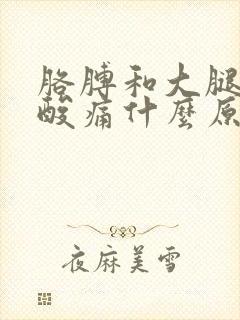 胳膊和大腿
酸痛什麼原
夜麻美雪